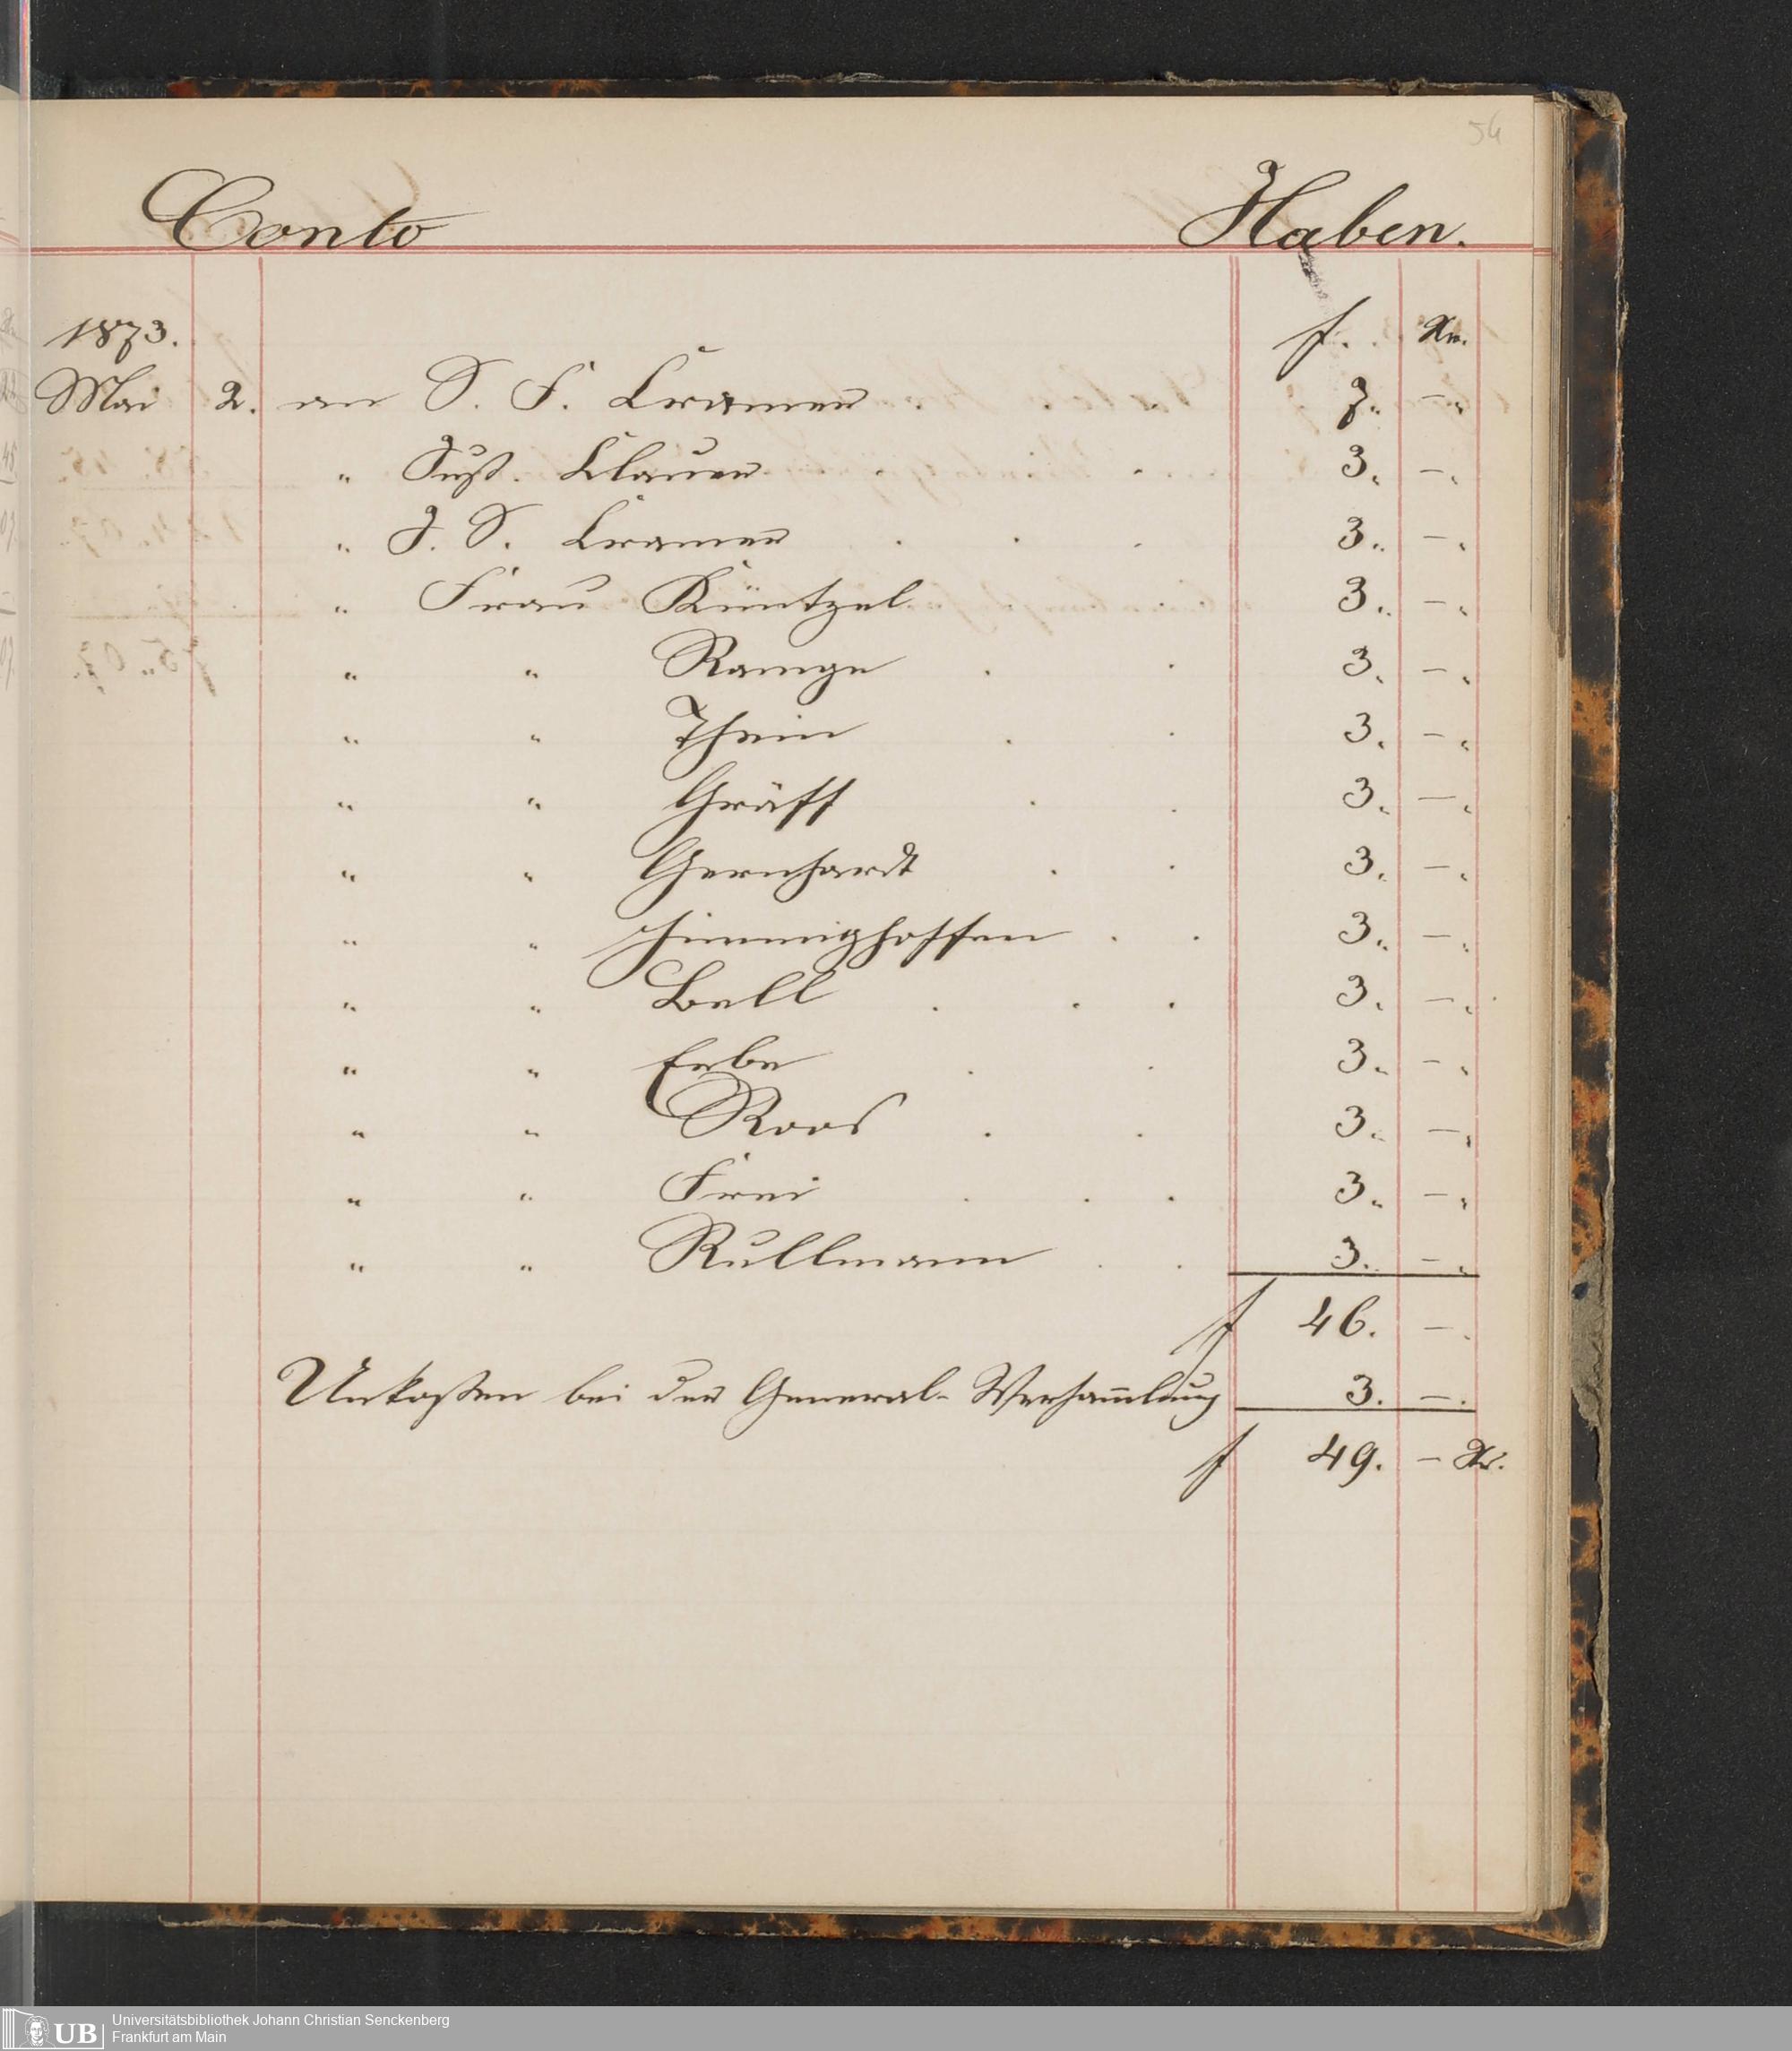 54
Conto Haben.
1873. f. Xr.
Mai 2. an S. F. Cramer . 7. —.
" Just. Clauer . . 3. —.
" J. S. Cramer . . . 3. —.
" Frau Küntzel . . 3. —.
" " Ramge . . 3. —.
" " Thein . . 3. —.
" " Gräff . . 3. —.
" " Gernhardt . . 3. —.
" " Himmighoffen . . 3. —.
" " Bell . . . 3. —.
" " Erbe . . 3. —.
" " Roos . . 3. —.
" " Frei . . . 3. —.
" " Rullmann . . 3. —.
f 46. —.
Unkosten bei der General-Versam̄lung 3. —.
f 49. — Xr.
UB Universitätsbibliothek Johann Christian Senckenberg
Frankfurt am Main